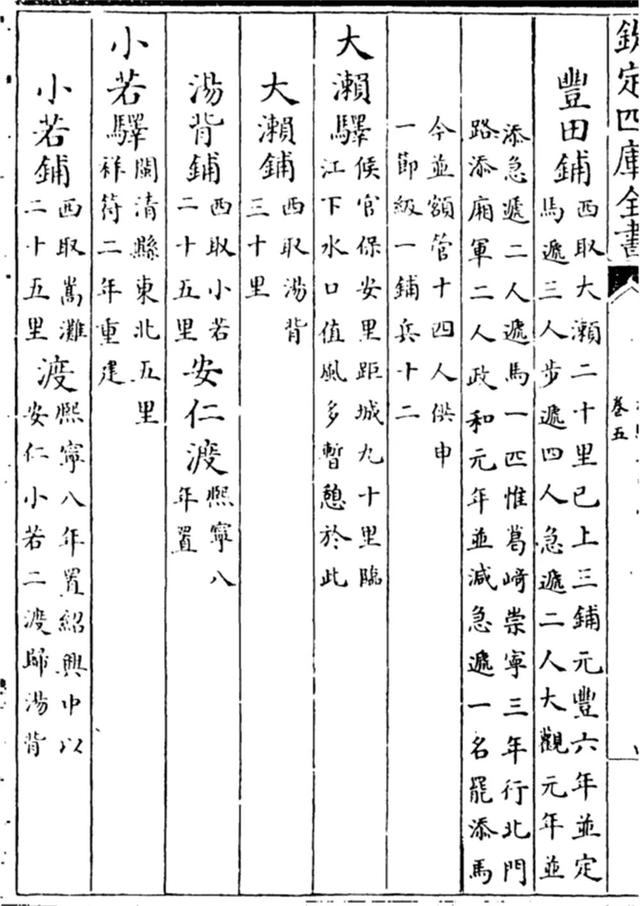 欽定四庫全書
卷五
豐田鋪
西取大瀨二十里已上三鋪元豐六年並定
馬遞三人步遞四人急遞二人大觀元年並
添急遞二人遞馬一匹惟葛﨑崇寧三年行北門
路添廂軍二人政和元年並減急遞一名罷添馬
今並額管十四人供申
一節級一鋪兵十二
大瀨驛
候官保安里距城九十里臨
江下水口值風多暫憩於此
大瀨鋪
西取湯背
三十里
湯背鋪
西取小若
二十五里
安仁渡
熙寧八
年置
小若驛
閩清縣東北五里
祥符二年重建
小若鋪
西取嵩灘
二十五里
渡
熙寧八年置紹興中以
安仁小若二渡歸湯背